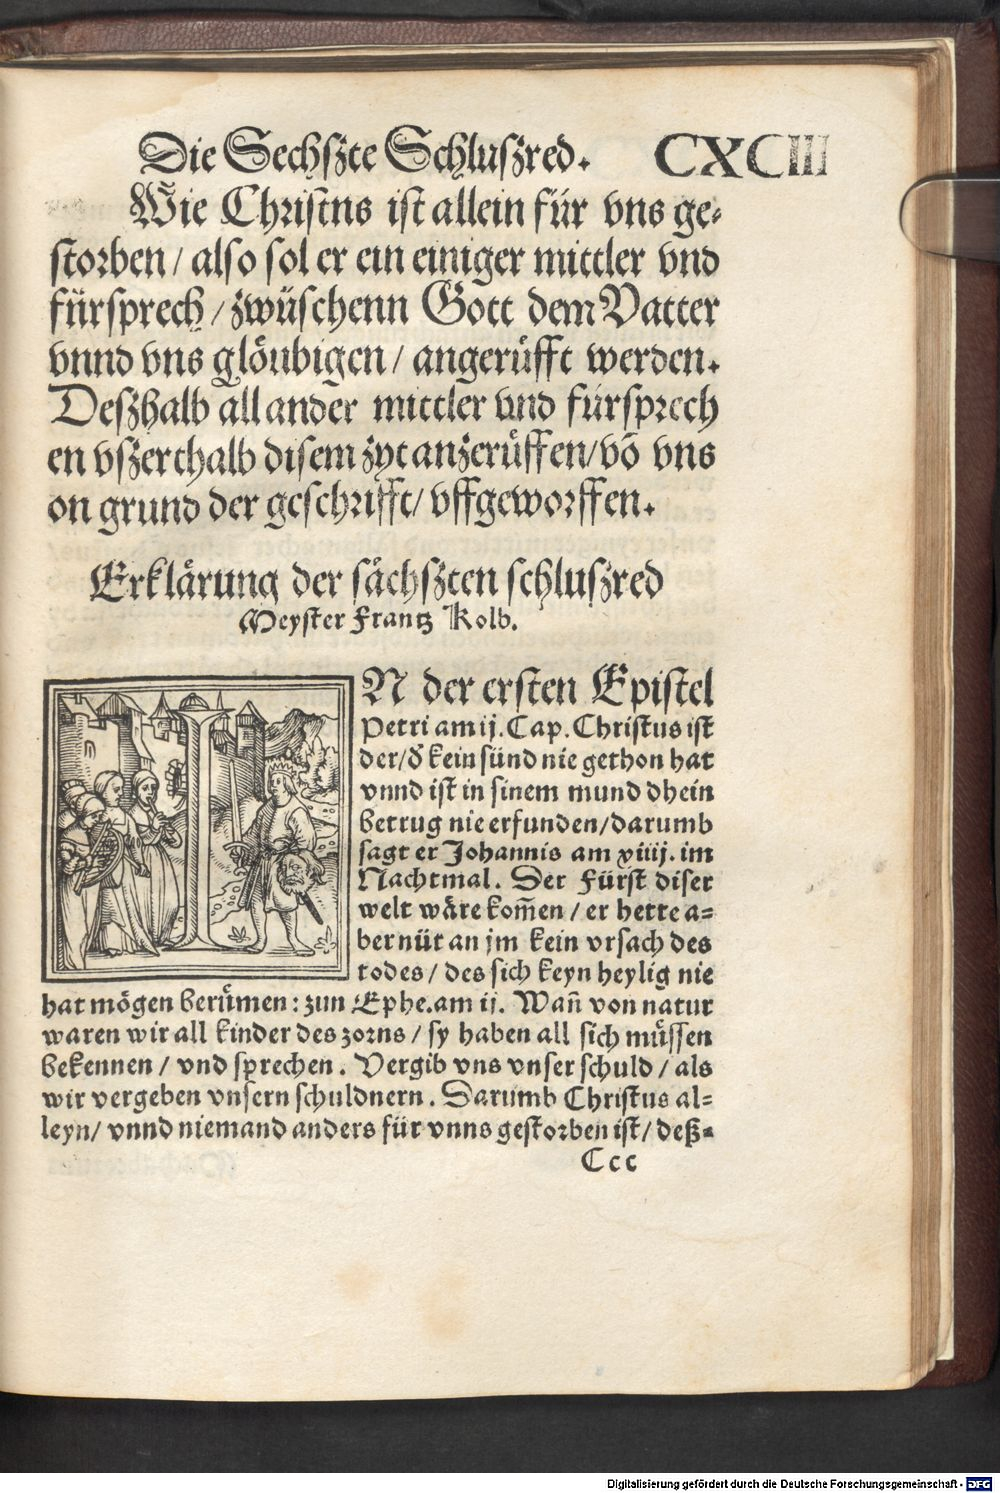 Die Sechszte Schluszred. CXCIII
Wie Christns ist allein für vns ge⸗
storben / also sol er ein einiger mittler vnd
fürsprech / zwüschenn Gott dem Vatter
vnnd vns glöubigen / angerüfft werden.
Deszhalb all ander mittler vnd fürsprech
en vszerthalb disem zyt anzerüffen / võ vns
on grund der geschrifft / vffgeworffen.
Erklärung der sächszten schluszred
Meyster Frantz Kolb.
IN der ersten Epistel
Petri am ij. Cap. Christus ist
der / ð kein sünd nie gethon hat
vnnd ist in sinem mund dhein
betrug nie erfunden / darumb
sagt er Johannis am xiiij. im
Nachtmal. Der Fürst diser
welt wäre kom̄en / er hette a⸗
ber nüt an jm kein vrsach des
todes / des sich keyn heylig nie
hat mögen berümen : zun Ephe. am ij. Wañ von natur
waren wir all kinder des zorns / sy haben all sich müssen
bekennen / vnd sprechen. Vergib vns vnser schuld / als
wir vergeben vnsern schuldnern. Darumb Christus al⸗
leyn / vnnd niemand anders für vnns gestorben ist / deß⸗
Ccc
Digitalisierung gefördert durch die Deutsche Forschungsgemeinschaft - DFG